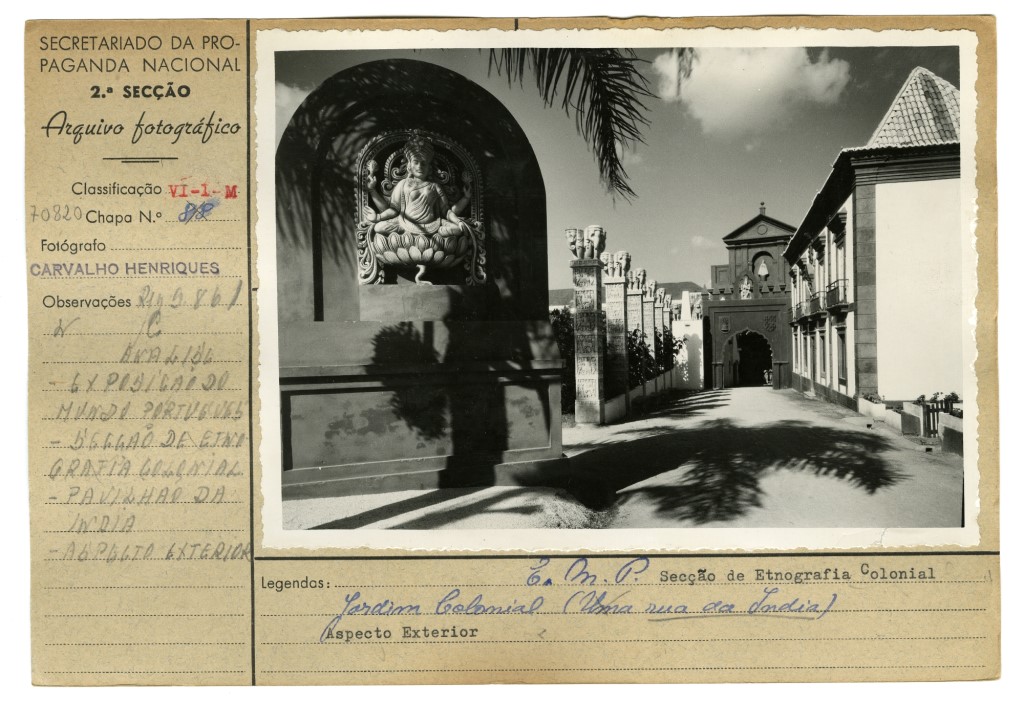 SECRETARIADO DA PRO-
PAGANDA NACIONAL
2.ª SECÇÃO
Arquivo fotográfico
Classificação VI-1-M
70820 Chapa N.º
Fotógrafo
CARVALHO HENRIQUES
Observações
ANALISE
- EXPOSIÇÃO DO
MUNDO PORTUGUES
- SECÇÃO DE ETNO
GRAFIA COLONIAL
- PAVILHÃO DA
INDIA
- ASPECTO EXTERIOR
Legendas: E. M. P. Secção de Etnografia Colonial
Jardim Colonial (Uma rua da India)
Aspecto Exterior